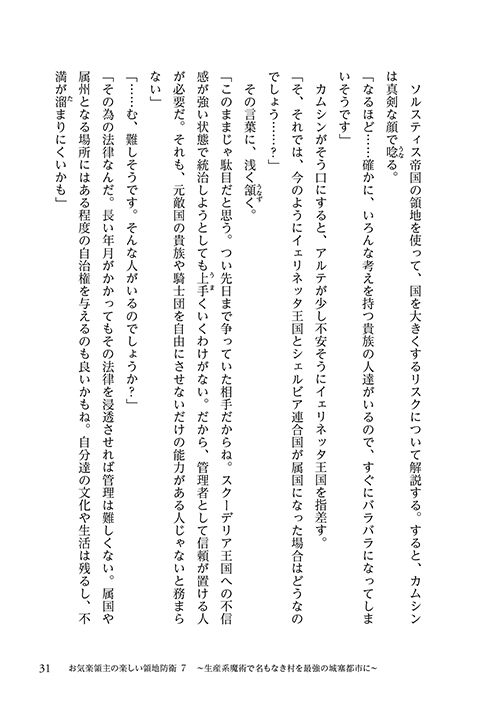 ソルスティス帝国の領地を使って、国を大きくするリスクについて解説する。すると、カムシン
は真剣な顔で唸る。
「なるほど……確かに、いろんな考えを持つ貴族の人達がいるので、すぐにバラバラになってしま
いそうです」
カムシンがそう口にすると、アルテが少し不安そうにイェリネッタ王国を指差す。
「そ、それでは、今のようにイェリネッタ王国とシェルビア連合国が属国になった場合はどうなの
でしょう……？」
その言葉に、浅く頷く。
「このままじゃ駄目だと思う。つい先日まで争っていた相手だからね。スクーデリア王国への不信
感が強い状態で統治しようとしても上手くいくわけがない。だから、管理者として信頼が置ける人
が必要だ。それも、元敵国の貴族や騎士団を自由にさせないだけの能力がある人じゃないと務まら
ない」
「……む、難しそうです。そんな人がいるのでしょうか？」
「その為の法律なんだ。長い年月がかかってもその法律を浸透させれば管理は難しくない。属国や
属州となる場所にはある程度の自治権を与えるのも良いかもね。自分達の文化や生活は残るし、不
満が溜まりにくいかも」
31 お気楽領主の楽しい領地防衛 7 ～生産系魔術で名もなき村を最強の城塞都市に～